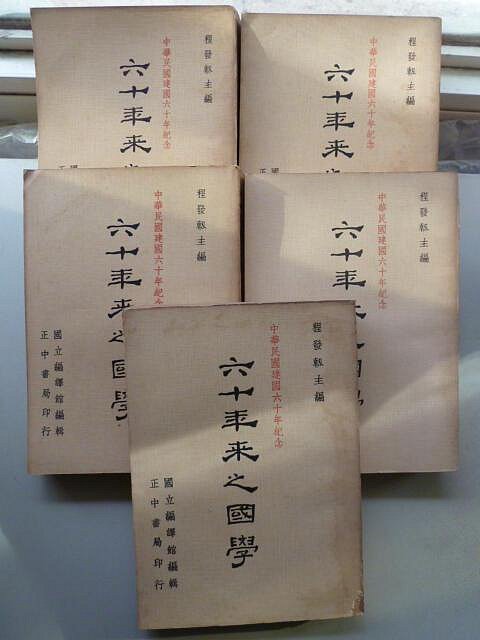 程發軔主編
中華民國建國六十年紀念
六十年来
國
正
程發軔主編
中華民國建國六十年紀念
六十年来
程發軔主編
中華民國建國六十年紀念
六十年来之國學
國立編譯館編輯
正中書局印行
程發軔主編
中華民國建國六十年紀念
六十年来之國學
程發軔主編
中華民國建國六十年紀念
六十年来之國學
國立編譯館編輯
正中書局印行